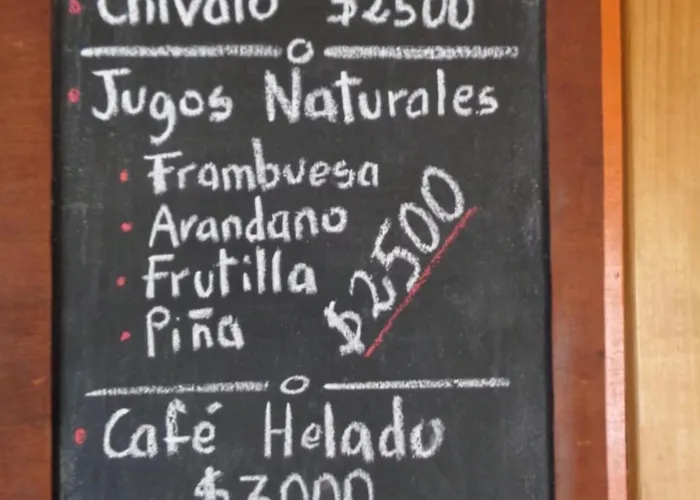 Chivato $2500
Jugos Naturales
Frambuesa
Arandano
Frutilla
Piña
$2500
Café Helado
$3000